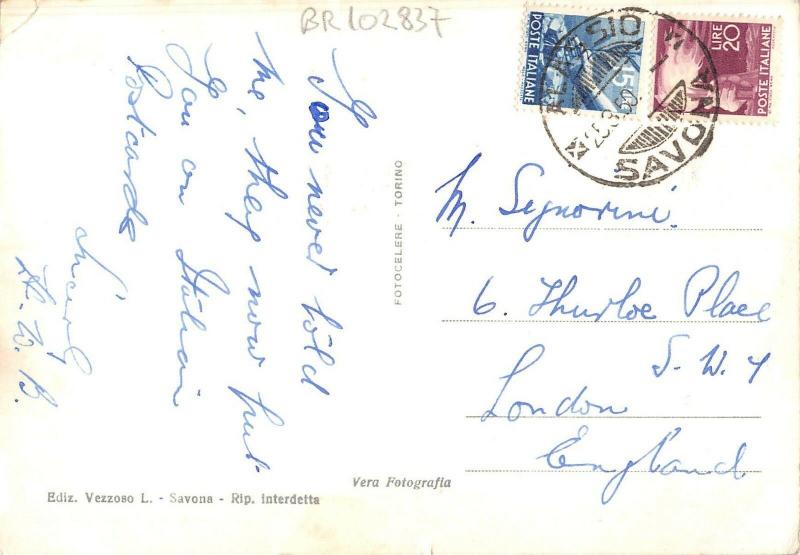 BR102837
You never told
me, they now put
you on Italian
Postcards
H. W. B.
FOTOCELERE - TORINO
Vera Fotografia
Ediz. Vezzoso L. - Savona - Rip. interdetta
POSTE ITALIANE
15
LIRE 20
POSTE ITALIANE
SAVONA
M. Signorini
6. Thurloe Place
S. W. 7
London
England